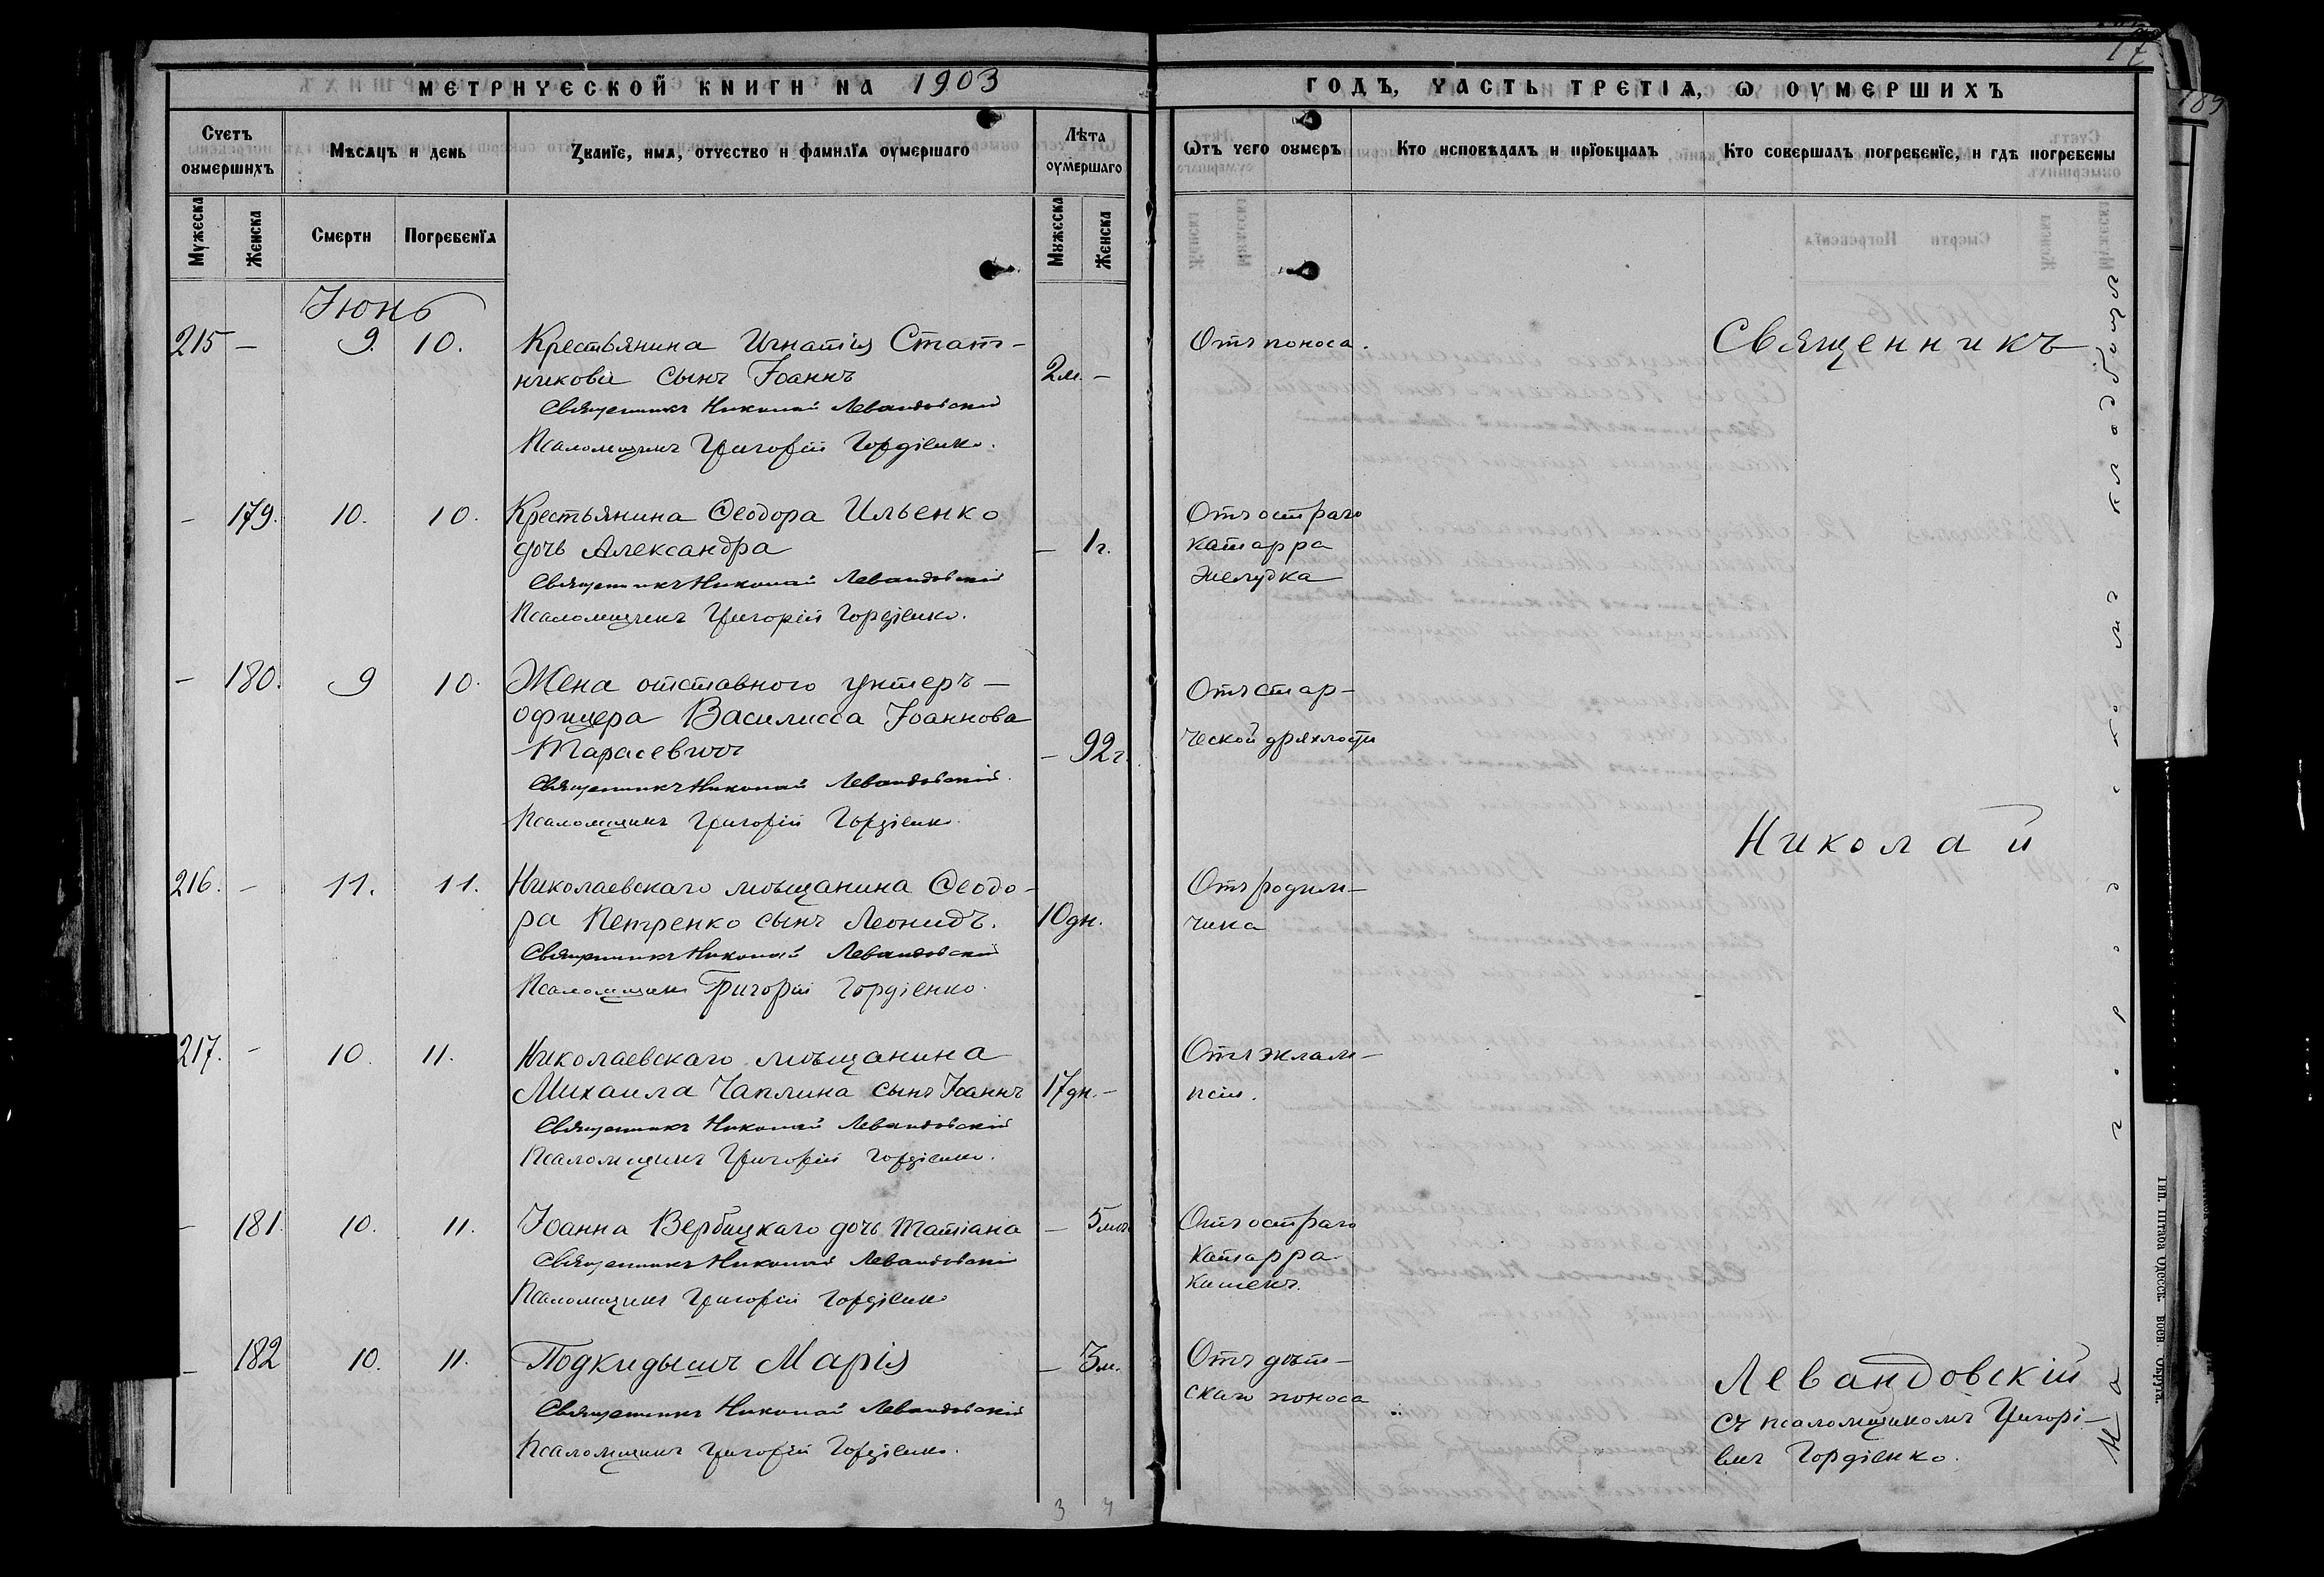 МЕТРИЧЕСКОЙ КНИГИ НА 1903
ГОДЪ, ЧАСТЬ ТРЕТІѦ, Ѡ ОУМЕРШИХЪ
Счетъ оумершихъ
Мѣсѧцъ и день
Званїе, имѧ, отчество и фамилїѧ оумершаго
Лѣта оумершаго
Ѿтъ чего оумеръ
Кто исповѣдалъ и прїобщалъ
Кто совершалъ погребенїе, и гдѣ погребены
Мужеска
Женска
Смерти
Погребенїѧ
Мужеска
Женска
Іюнь
215 — 9. 10. Крестьянина Игнатія Стат-
никова сынъ Іоаннъ 2м. —
Отъ поноса.
Священникъ Николай Левандовскій
Псаломщикъ Григорій Гордіенко.
— 179. 10. 10. Крестьянина Ѳеодора Ильенко
дочь Александра — 1г.
Отъ остраго
катарра
желудка
Священникъ Николай Левандовскій
Псаломщикъ Григорій Гордіенко.
— 180. 9 10. Жена отставного унтеръ-
офицера Василисса Іоаннова
Тарасевичъ — 92г.
Отъ стар-
ческой дряхлости
Священникъ Николай Левандовскій
Псаломщикъ Григорій Гордіенко.
216. — 11. 11. Николаевскаго мѣщанина Ѳеодо-
ра Петренко сынъ Леонидъ. 10дн.
Отъ родим-
чика
Священникъ Николай Левандовскій
Псаломщикъ Григорій Гордіенко.
217. — 10. 11. Николаевскаго мѣщанина
Михаила Чаплина сынъ Іоаннъ 17дн. —
Отъ эклам-
псіи.
Священникъ Николай Левандовскій
Псаломщикъ Григорій Гордіенко.
— 181. 10. 11. Іоанна Вербицкаго дочь Татіана — 5мѣс
Отъ остраго
катарра
кишекъ.
Священникъ Николай Левандовскій
Псаломщикъ Григорій Гордіенко
— 182 10. 11. Подкидышъ Марія — 3м.
Отъ дѣт-
скаго поноса
Священникъ Николай Левандовскій
Псаломщикъ Григорій Гордіенко.
Священникъ
Николай
Левандовскій
съ псаломщикомъ Григорі-
емъ Гордіенко.
На городскомъ кладбищѣ
3 4
17
189
Тип. Штаба Одесск. воен. Округа.